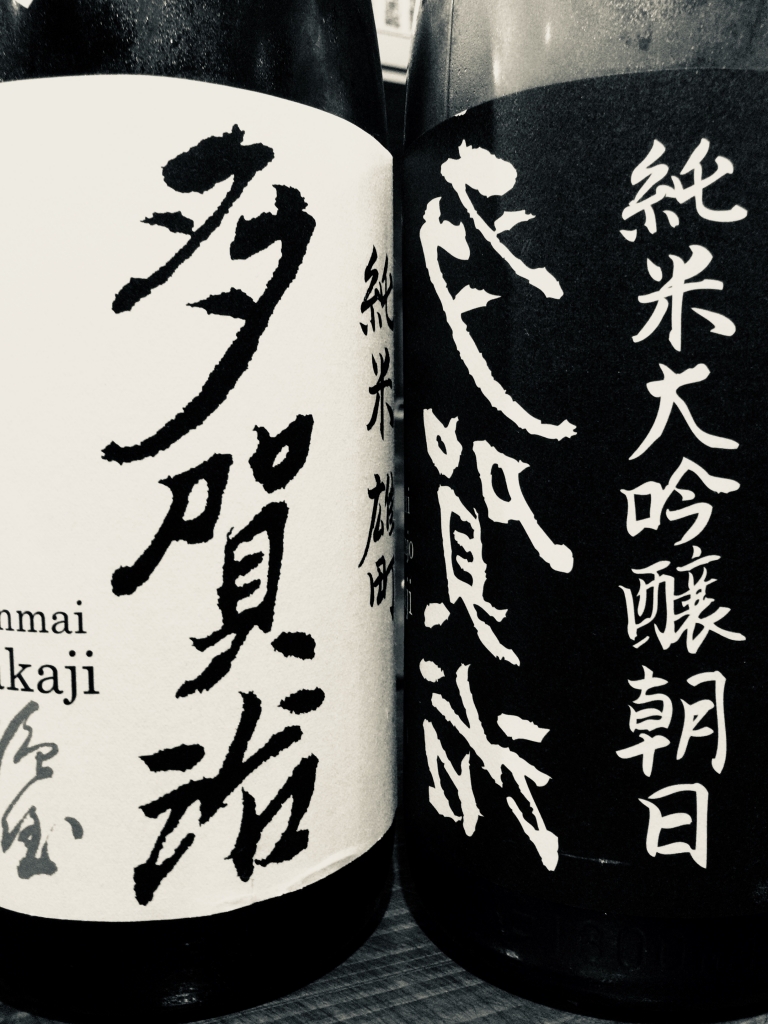 多賀治
純米 雄町
nmai
kaji
多賀治
純米大吟醸朝日